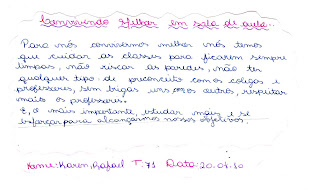 Convivendo Melhor em sala de aula.
Para nós convivermos melhor nós temos
que cuidar as classes para ficarem sempre
limpas, não riscar as paredes, não ter
qualquer tipo de preconceito com os colegas e
professores, sem brigas uns os outros, respeitar
mais os professores.
E, o mais importante, estudar mais e se
esforçar para alcançarmos nossos objetivos.
Nome: Karen, Rafael T. 71 Data: 20.04.10